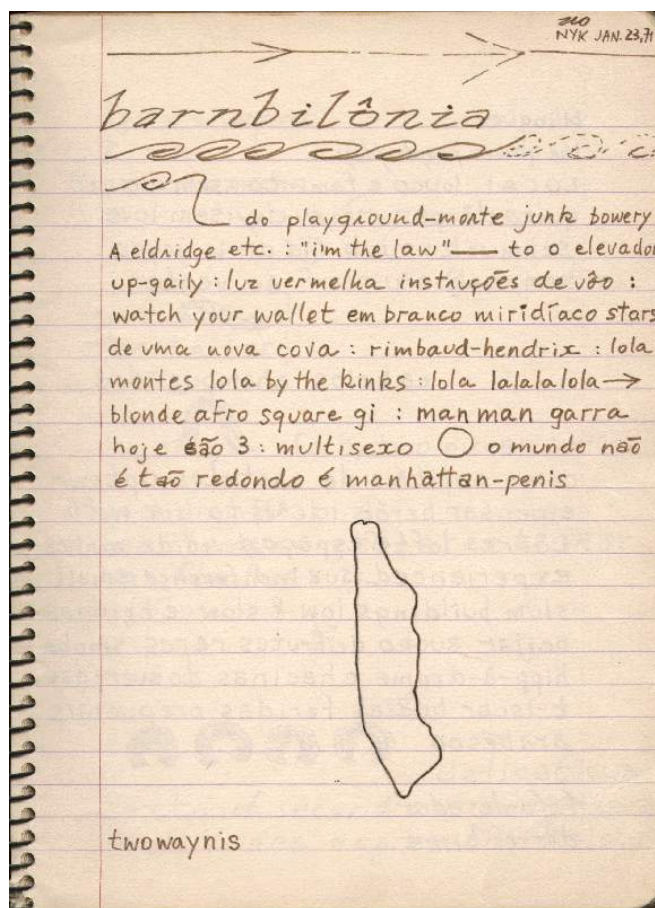 NYK JAN. 23,71
barnbilônia
do playground-monte junk bowery
A eldridge etc. : "i'm the law" — to o elevador
up-gaily : luz vermelha instruções de vôo :
watch your wallet em branco miridíaco stars
de uma nova cova : rimbaud-hendrix : lola
montes lola by the kinks : lola lalalalola→
blonde afro square gi : man man garra
hoje são 3 : multisexo ◯ o mundo não
é taõ redondo é manhattan-penis
twowaynis